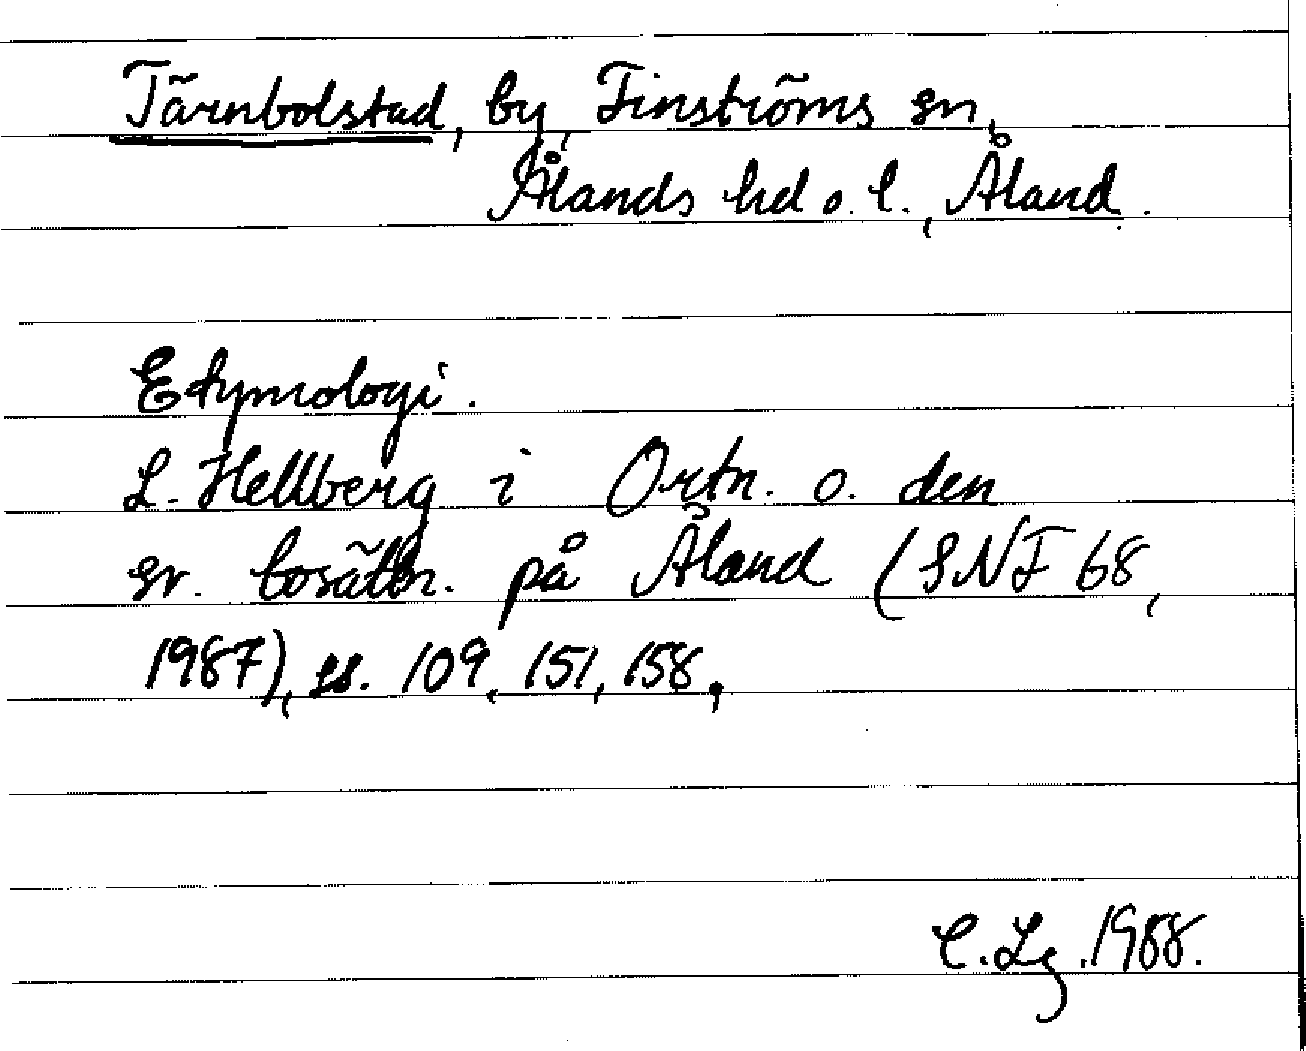 Tärnbolstad, by, Finströms sn,
Ålands hd o. l., Åland.
Etymologi.
L. Hellberg i Ortn. o. den
sv. bosättn. på Åland (SNF 68,
1987), ss. 109, 151, 158,
C. Lg. 1988.